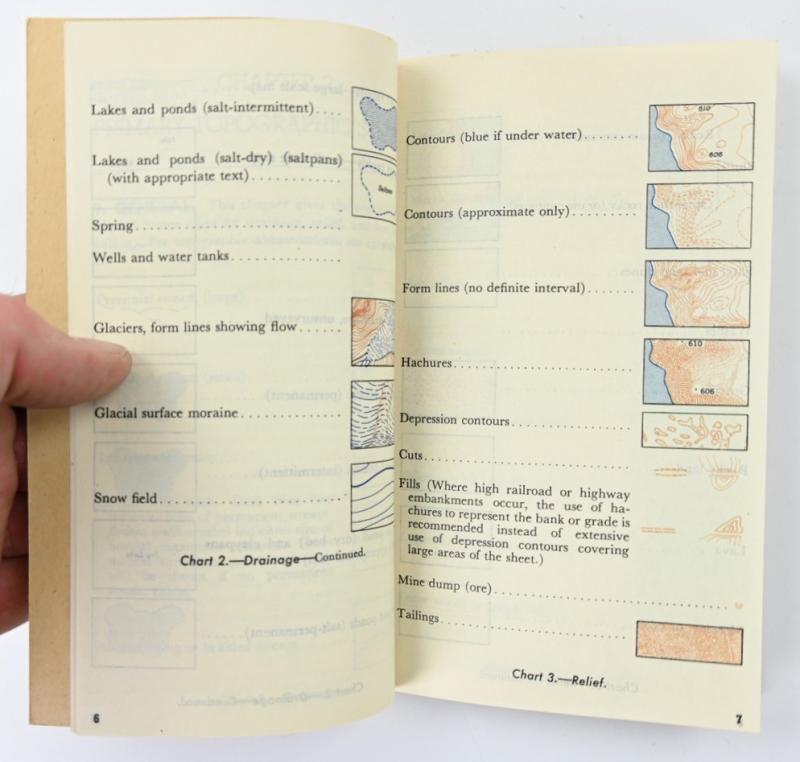 Lakes and ponds (salt-intermittent)....
Lakes and ponds (salt-dry) (saltpans)
(with appropriate text)............
Spring..............................
Wells and water tanks...............
Glaciers, form lines showing flow......
Glacial surface moraine...............
Snow field...........................
Chart 2.—Drainage—Continued.
6
Contours (blue if under water)........
610
606
Contours (approximate only).........
Form lines (no definite interval).......
Hachures..........................
610
606
Depression contours.................
Cuts..............................
Fills (Where high railroad or highway
embankments occur, the use of ha-
chures to represent the bank or grade is
recommended instead of extensive
use of depression contours covering
large areas of the sheet.)
Mine dump (ore)..............................
Tailings...........................
Chart 3.—Relief.
7